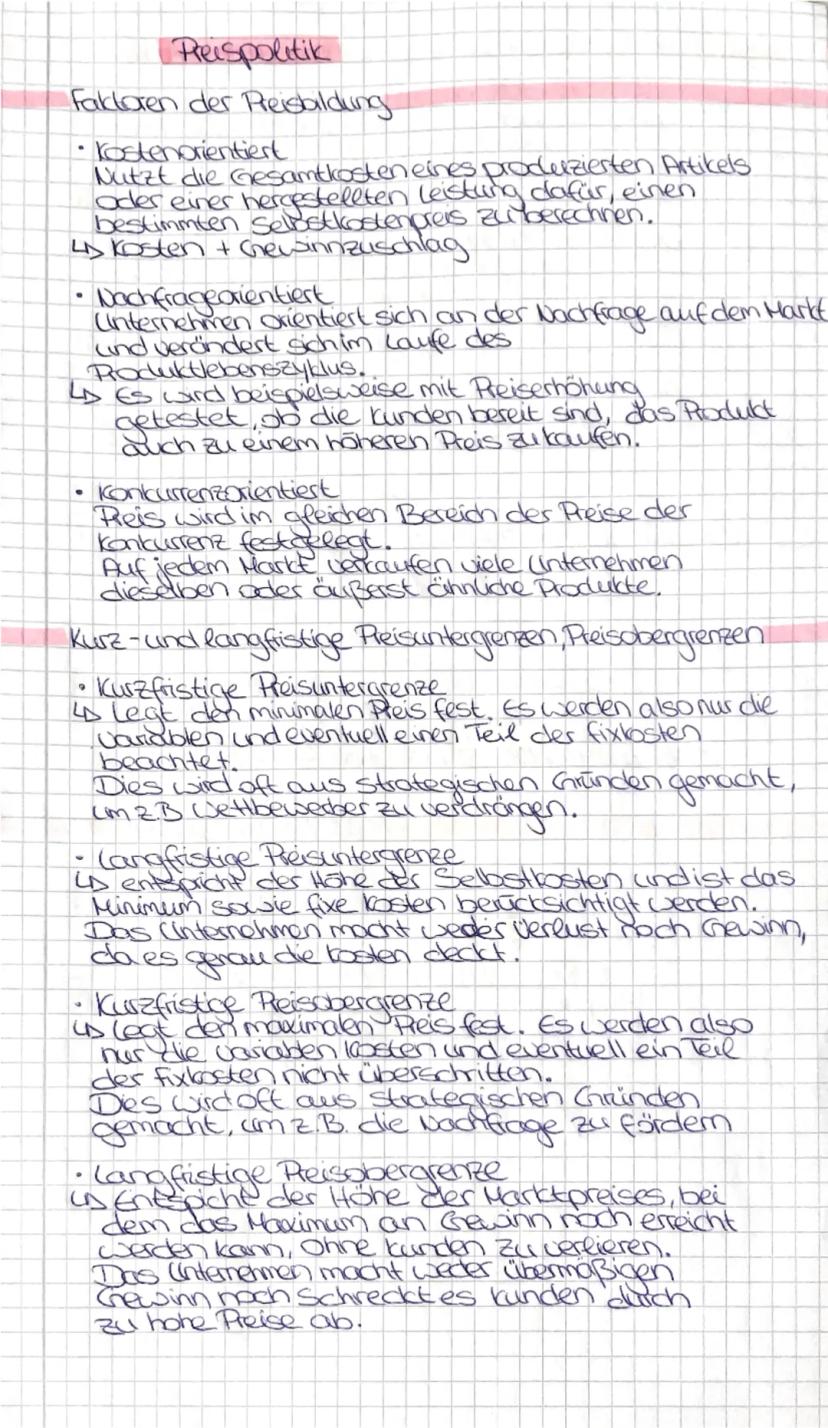 Preispolitik
Faktoren der Preisbildung
• Kostenorientiert
Nutzt die Gesamtkosten eines produzierten Artikels
oder einer hergestellten Leistung dafür, einen
bestimmten Selbstkostenpreis zu berechnen.
↳ Kosten + Gewinnzuschlag
• Nachfrageorientiert
Unternehmen orientiert sich an der Nachfrage auf dem Markt
und verändert sich im Laufe des
Produktlebenszyklus.
↳ Es wird beispielsweise mit Preiserhöhung
getestet, ob die Kunden bereit sind, das Produkt
auch zu einem höheren Preis zu kaufen.
• Konkurrenzorientiert
Preis wird im gleichen Bereich der Preise der
Konkurrenz festgelegt.
Auf jedem Markt verkaufen viele Unternehmen
dieselben oder äußerst ähnliche Produkte.
Kurz- und langfristige Preisuntergrenzen, Preisobergrenzen
• Kurzfristige Preisuntergrenze
↳ Legt den minimalen Preis fest. Es werden also nur die
variablen und eventuell einen Teil der fixkosten
beachtet.
Dies wird oft aus strategischen Gründen gemacht,
um z.B Wettbewerber zu verdrängen.
• Langfristige Preisuntergrenze
↳ entspricht der Höhe der Selbstkosten und ist das
Minimum sowie fixe Kosten berücksichtigt werden.
Das Unternehmen macht weder Verlust noch Gewinn,
da es genau die Kosten deckt.
• Kurzfristige Preisobergrenze
↳ Legt den maximalen Preis fest. Es werden also
nur die variablen Kosten und eventuell ein Teil
der fixkosten nicht überschritten.
Dies wird oft aus strategischen Gründen
gemacht, um z.B. die Nachfrage zu fördern
• Langfristige Preisobergrenze
↳ Entspicht der Höhe der Marktpreises, bei
dem das Maximum an Gewinn noch erreicht
werden kann, ohne Kunden zu verlieren.
Das Unternehmen macht weder übermäßigen
Gewinn noch Schreckt es Kunden durch
zu hohe Preise ab.